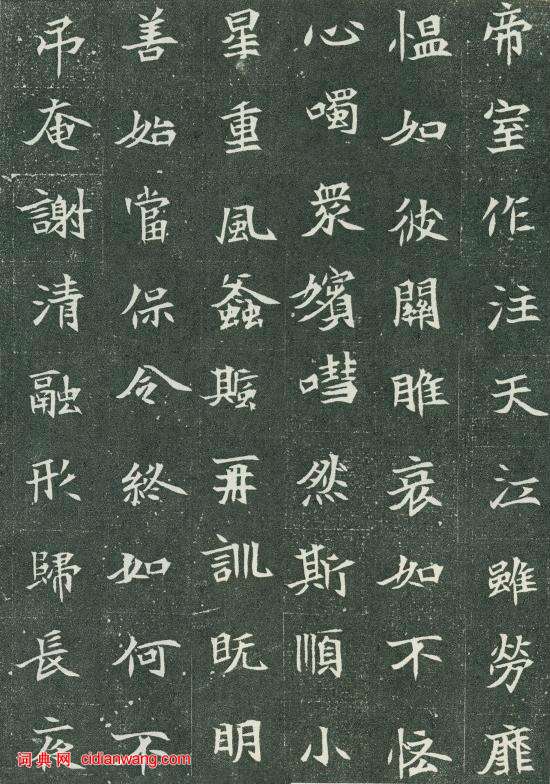 帝室作注天江雖勞靡
愠如彼關雎哀如不恡
心噣眾嬪嘒然斯順小
星重風螽蟴再訓既明
善始當保令終如何不
吊奄謝清融形歸長夜
词典网 cidianwang.com